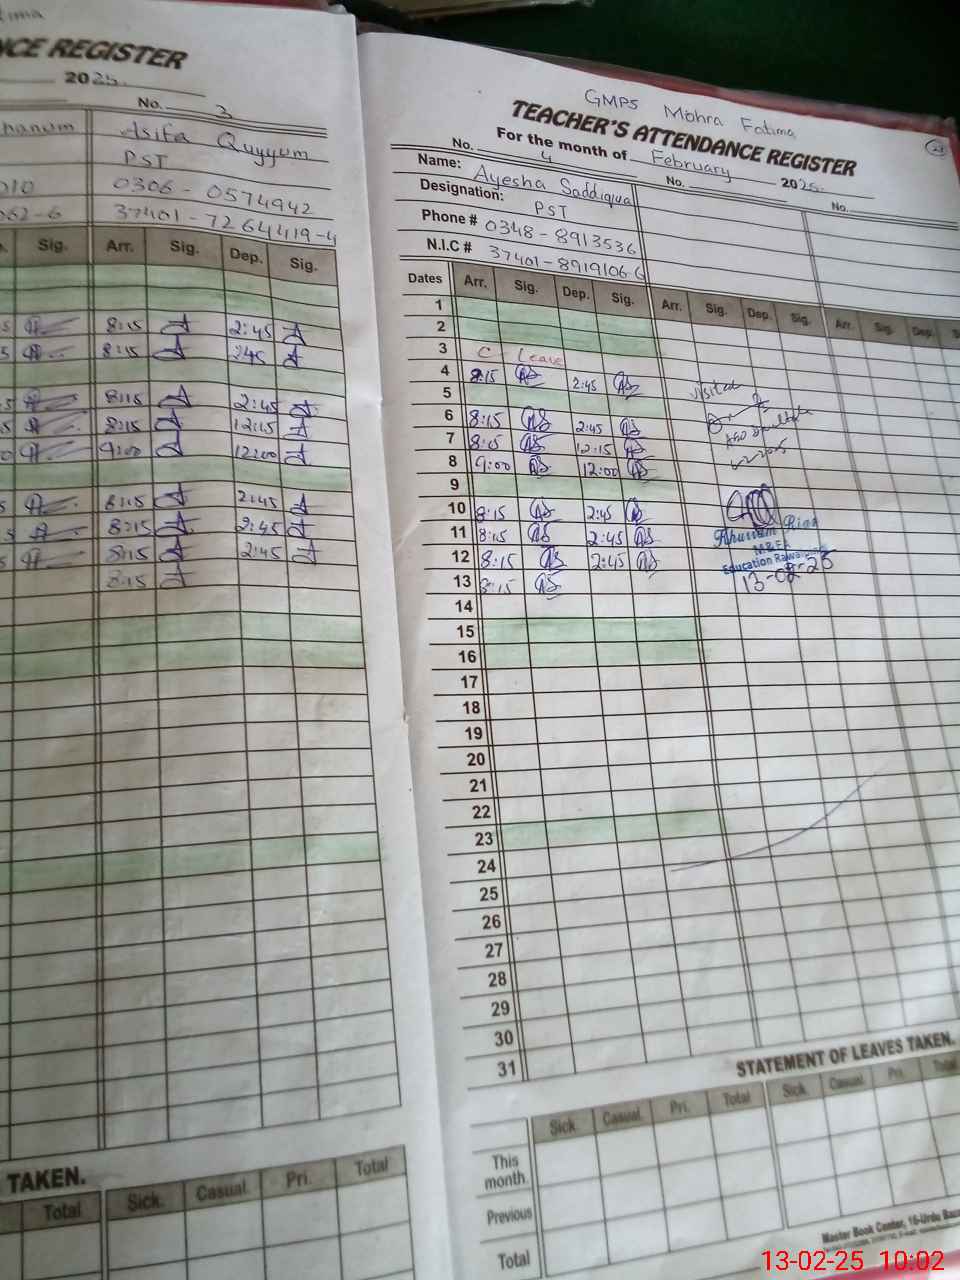 ima
NCE REGISTER
2025.
No. 3
hanum Asifa Quyyum
PST
010 0306 - 0574942
062-6 37401 - 7264419-4
Sig. Arr. Sig. Dep. Sig.
8:15 2:45
8:15 245
8:15 2:45
8:15 12:15
9:00 12:00
8:15 2:45
8:15 2:45
8:15 2:45
8:15
TAKEN.
Total Sick. Casual Pri. Total
GMPS Mohra Fatima
TEACHER'S ATTENDANCE REGISTER
For the month of February 2025.
No. 4 No. No.
Name: Ayesha Saddiqua
Designation: PST
Phone # 0348 - 8913536
N.I.C # 37401 - 8919106-6
Dates Arr. Sig. Dep. Sig. Arr. Sig. Dep. Sig. Arr. Sig. Dep.
1
2
3 C Leave
4 8:15 AS 2:45 AS
5
6 8:15 AS 2:45 AS
7 8:15 AS 12:15 AS
8 9:00 AS 12:00 AS
9
10 8:15 AS 2:45 AS
11 8:15 AS 2:45 AS
12 8:15 AS 2:45 AS
13 8:15 AS
14
15
16
17
18
19
20
21
22
23
24
25
26
27
28
29
30
31
visited
AEO
Khurram Riaz
M&EA
Education
13-02-25
STATEMENT OF LEAVES TAKEN.
Sick Casual Pri. Total Sick. Casual Pri. Total
This month.
Previous
Total
Master Book Center, 16-Urdu
13-02-25 10:02